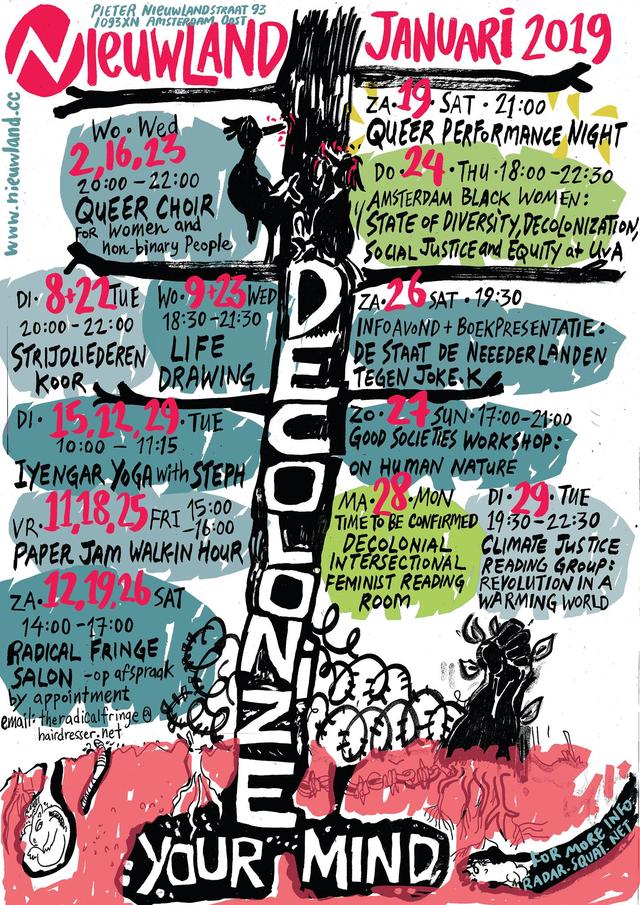 PIETER NIEUWLANDSTRAAT 93
1093XN AMSTERDAM OOST
NIEUWLAND
JANUARI 2019
www.nieuwland.cc
Wo · Wed
2,16,23
20:00 - 22:00
QUEER CHOIR
FOR women and
non-binary People
ZA · 19 · SAT · 21:00
QUEER PERFORMANCE NIGHT
DO · 24 · THU · 18:00 - 22:30
AMSTERDAM BLACK WOMEN:
STATE OF DIVERSITY, DECOLONIZATION,
SOCIAL JUSTICE and EQUITY at UvA
DI · 8+22 TUE
20:00 - 22:00
STRIJDLIEDEREN
KOOR
WO · 9+23 WED
18:30 - 21:30
LIFE
DRAWING
ZA · 26 SAT · 19:30
INFOAVOND + BOEKPRESENTATIE:
DE STAAT DE NEEEDERLANDEN
TEGEN JOKE.K
DI · 15,22,29 · TUE
10:00 - 11:15
IYENGAR YOGA with STEPH
ZO · 27 SUN · 17:00-21:00
GOOD SOCIETIES WORKSHOP:
ON HUMAN NATURE
VR · 11,18,25 FRI 15:00
-16:00
PAPER JAM WALK-IN HOUR
MA · 28 · MON
TIME TO BE CONFIRMED
DECOLONIAL
INTERSECTIONAL
FEMINIST READING
ROOM
DI · 29 · TUE
19:30 - 22:30
CLIMATE JUSTICE
READING GROUP:
REVOLUTION IN A
WARMING WORLD
ZA · 12,19,26 SAT
14:00 - 17:00
RADICAL FRINGE
SALON - op afspraak
by appointment
email: theradicalfringe@
hairdresser.net
DECOLONIZE
YOUR MIND
FOR MORE INFO:
RADAR.SQUAT.NET